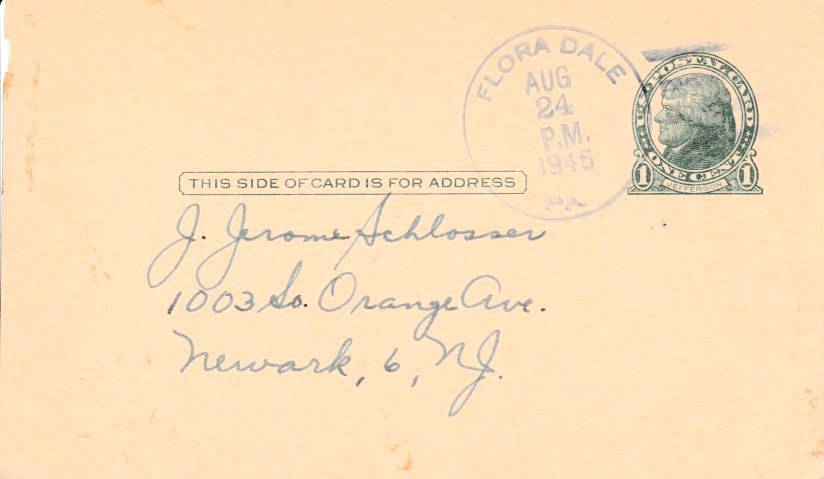 FLORA DALE
AUG
24
P.M.
1945
PA
U.S. POSTAL CARD
ONE CENT
1 JEFFERSON 1
THIS SIDE OF CARD IS FOR ADDRESS
J. Jerome Schlosser
1003 So. Orange Ave.
Newark, 6, NJ.